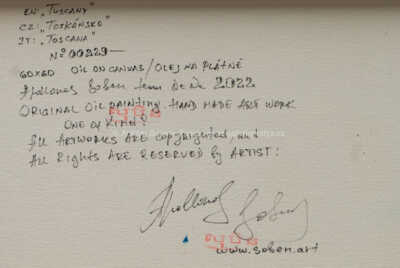 EN: „TUSCANY"
CZ: „TOSKÁNSKO"
IT: „TOSCANA"
Nº 00229
60X60 OIL ON CANVAS / OLEJ NA PLÁTNĚ
Apollonas Soben 2022
ORIGINAL OIL PAINTING. HAND MADE ART WORK
ONE OF KIND!
All ARTWORKS ARE copyrighted, and
All RIGHTS ARE RESERVED by ARTIST!
Apollonas Soben
www.soben.art